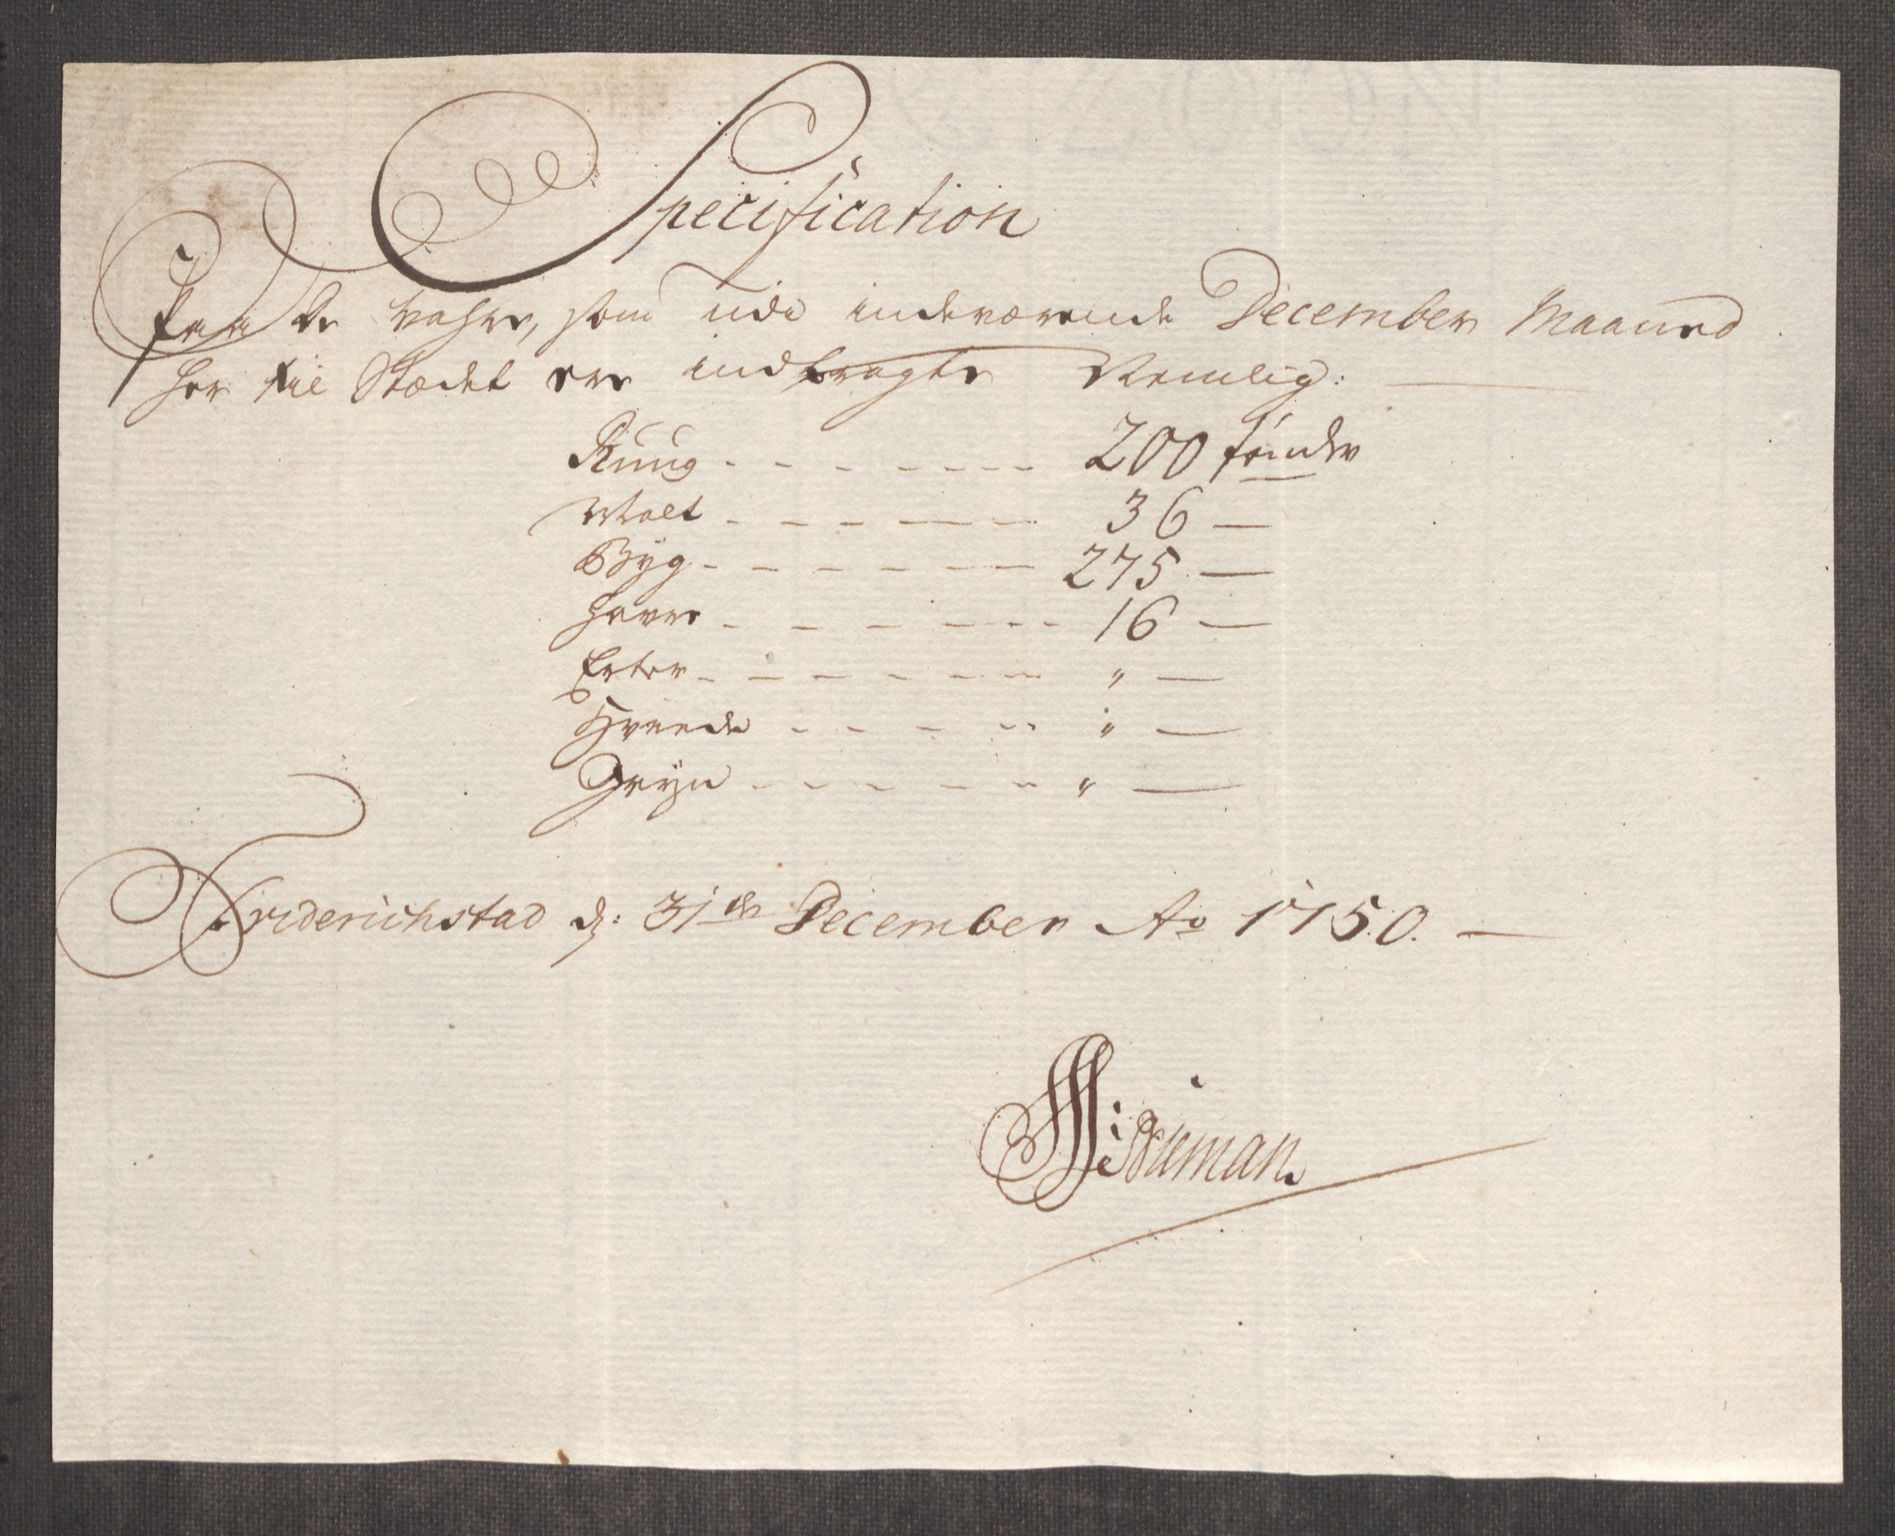 Specification
Paa de Vahre, som udi indeværende December Maaned
her til Stædet ere indbragte Nemlig:
Ruug - - - - - - - 200 tønder
Malt - - - - - - 36 —
Byg - - - - - - 275 —
Havre - - - - - - 16 —
Erter - - - - - - " —
Hveede - - - - - " —
Gryn - - - - - - " —
Friderichstad d: 31de December Ao 1750. —